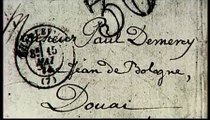 30
Monsieur Paul Demeny
Jean de Bologne,
Douai
15
MAI
(7)